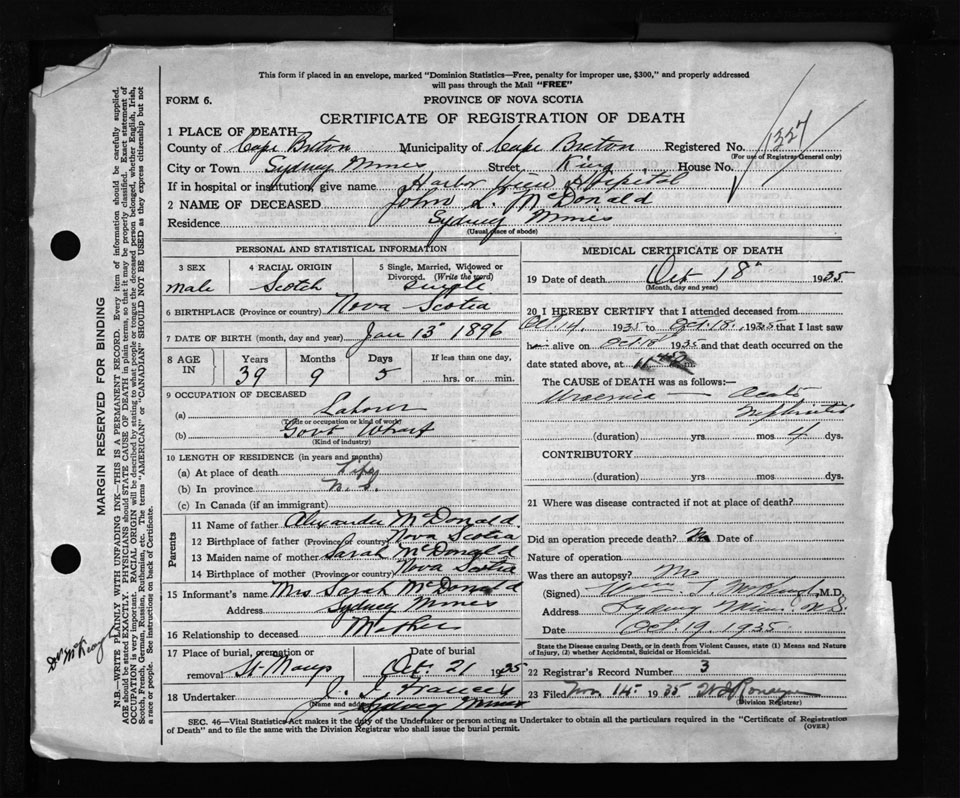 This form if placed in an envelope, marked "Dominion Statistics—Free, penalty for improper use, $300," and properly addressed
will pass through the Mail "FREE"
FORM 6.
PROVINCE OF NOVA SCOTIA
CERTIFICATE OF REGISTRATION OF DEATH
1 PLACE OF DEATH
County of Cape Breton Municipality of Cape Breton Registered No. 1327
(For use of Registrar General only)
City or Town Sydney Mines Street King House No.
If in hospital or institution, give name Harbor View Hospital
2 NAME OF DECEASED John L. McDonald
Residence Sydney Mines
(Usual place of abode)
PERSONAL AND STATISTICAL INFORMATION
3 SEX male
4 RACIAL ORIGIN Scotch
5 Single, Married, Widowed or Divorced. (Write the word) Single
6 BIRTHPLACE (Province or country) Nova Scotia
7 DATE OF BIRTH (month, day and year) Jan 13 1896
8 AGE IN Years 39 Months 9 Days 5 If less than one day, hrs. or min.
9 OCCUPATION OF DECEASED
(a) Laborer
(Trade or occupation or kind of work)
(b) Govt Wharf
(Kind of industry)
10 LENGTH OF RESIDENCE (in years and months)
(a) At place of death Life
(b) In province N. S.
(c) In Canada (if an immigrant)
Parents
11 Name of father Alexander McDonald
12 Birthplace of father (Province or country) Nova Scotia
13 Maiden name of mother Sarah McDonald
14 Birthplace of mother (Province or country) Nova Scotia
15 Informant's name Mrs Sarah McDonald
Address Sydney Mines
16 Relationship to deceased Mother
17 Place of burial, cremation or removal Date of burial Oct 21 1935
18 Undertaker J. J. Francis
(Name and address) Sydney Mines
MEDICAL CERTIFICATE OF DEATH
19 Date of death Oct 18th 1935
(Month, day and year)
20 I HEREBY CERTIFY that I attended deceased from
Oct. 14 1935 to Oct. 18 1935 that I last saw
him alive on Oct 18 1935 and that death occurred on the
date stated above, at m.
The CAUSE of DEATH was as follows:—
Uraemia — Acute
Nephritis
(duration) yrs mos 4 dys.
CONTRIBUTORY
(duration) yrs. mos. dys.
21 Where was disease contracted if not at place of death?
Did an operation precede death? no Date of
Nature of operation
Was there an autopsy? no
(Signed) M.D.
Address Sydney Mines N.S.
Date Oct. 19. 1935.
State the Disease causing Death, or in death from Violent Causes, state (1) Means and Nature
of Injury, (2) whether Accidental, Suicidal or Homicidal.
22 Registrar's Record Number 3
23 Filed Nov 14th 1935
(Division Registrar)
SEC. 46—Vital Statistics Act makes it the duty of the Undertaker or person acting as Undertaker to obtain all the particulars required in the "Certificate of Registration
of Death" and to file the same with the Division Registrar who shall issue the burial permit.
(OVER)
MARGIN RESERVED FOR BINDING
N.B.—WRITE PLAINLY WITH UNFADING INK—THIS IS A PERMANENT RECORD. Every item of information should be carefully supplied.
AGE should be stated EXACTLY. PHYSICIANS should STATE CAUSE OF DEATH in plain terms, so that it may be properly classified. Exact statement of
OCCUPATION is very important. RACIAL ORIGIN will be described by stating to what people or tongue the deceased person belonged, whether English, Irish,
Scotch, French, German, Russian, Ruthenian, etc. The terms "AMERICAN" or "CANADIAN" SHOULD NOT BE USED as they express citizenship but not
a race or people. See instructions on back of Certificate.